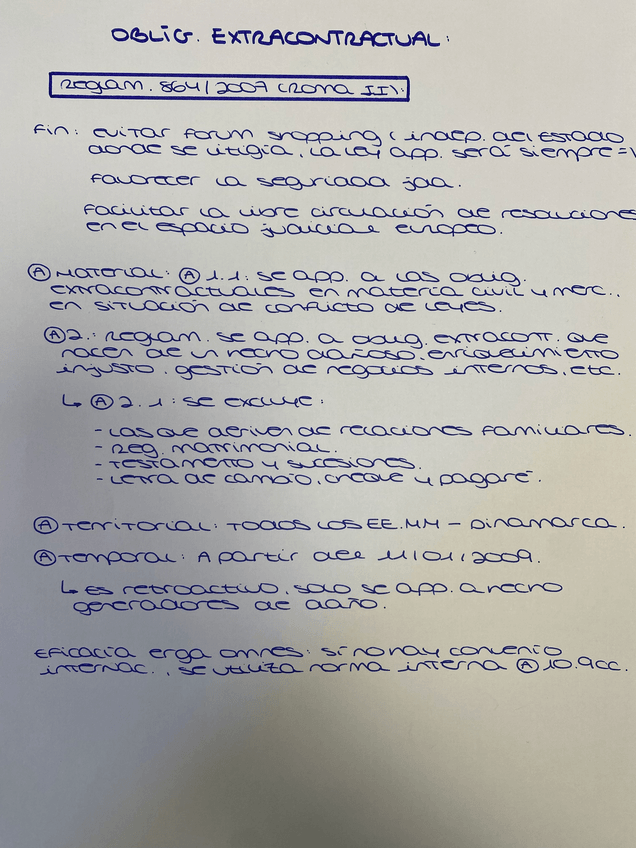 OBLIG. EXTRACONTRACTUAL:
Reglam. 864/2007 (Roma II).
Fin: evitar forum shopping (indep. del ESTADO
donde se litigia, la ley app. será siempre =
Favorecer la seguridad jca.
Facilitar la libre circulación de resoluciones
en el espacio judicial europeo.
Ⓐ Material: Ⓐ 1.1: se app. a las oblig.
extracontractuales en materia civil y merc.,
en situación de conflicto de leyes.
Ⓐ 2.: Reglam. se app. a oblig. extracont. que
nacen de un hecho dañoso, enriquecimiento
injusto, gestión de negocios internos, etc.
↳ Ⓐ 2.1: se excluye:
- Las que deriven de relaciones familiares.
- Reg. matrimonial.
- Testamento y sucesiones.
- Letra de cambio, cheque y pagaré.
Ⓐ Territorial: Todos los EE.MM - Dinamarca.
Ⓐ Temporal: A partir del 11/01/2009.
↳ Es retroactivo, solo se app. a hecho
generadores de daño.
Eficacia erga omnes: si no hay convenio
internac., se utiliza norma interna Ⓐ 10.9cc.